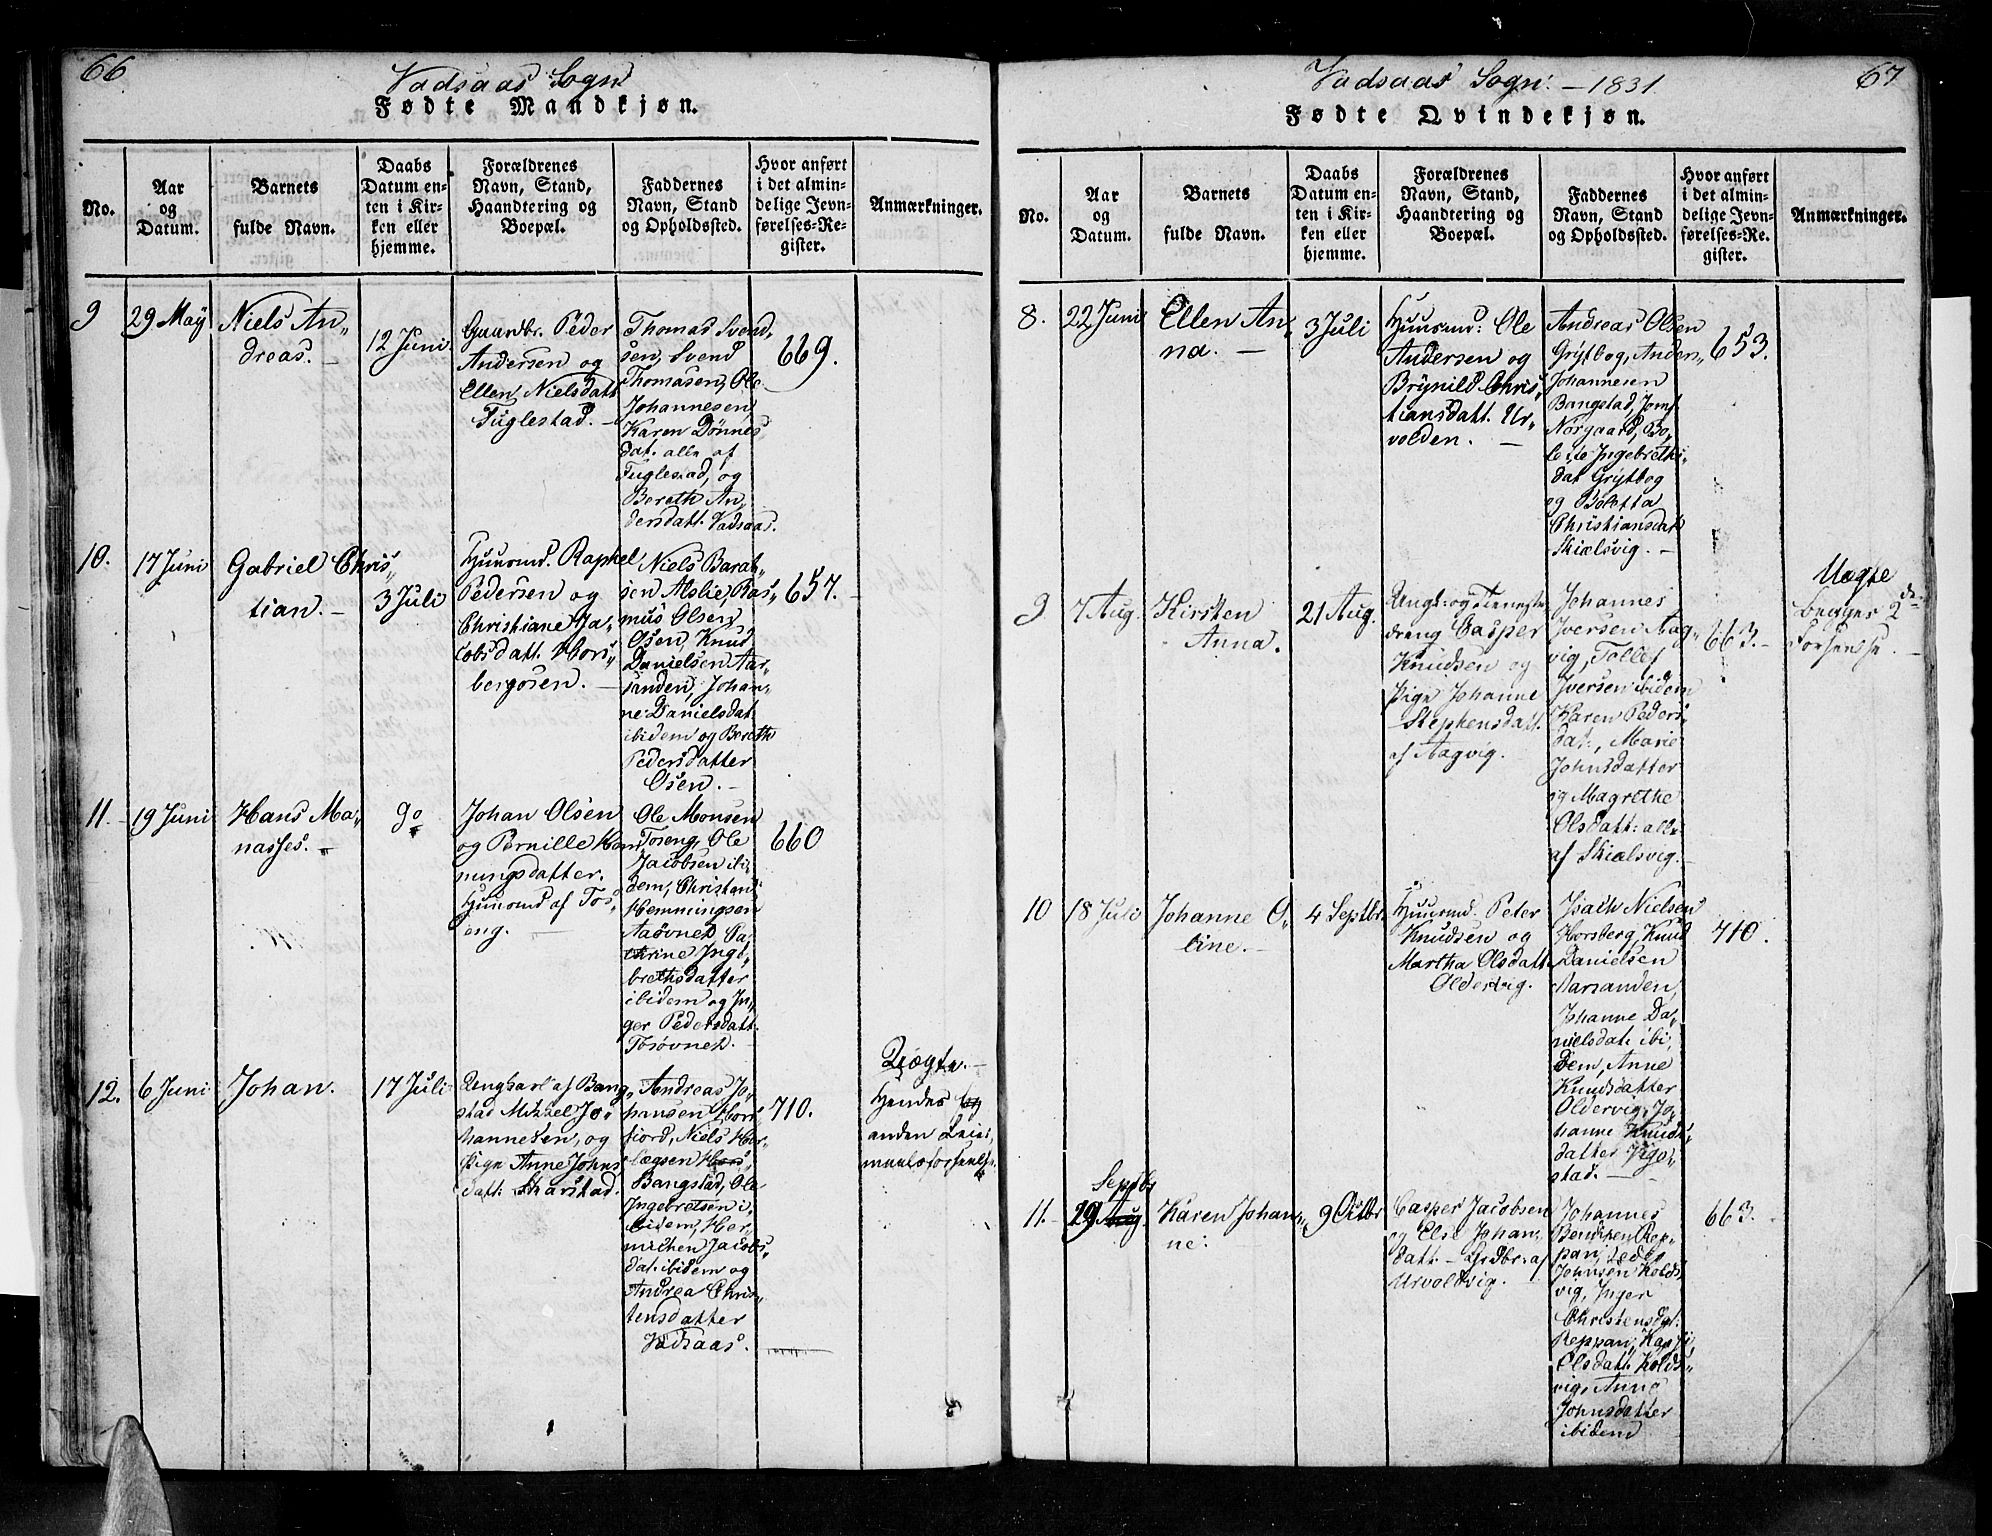 66
Vadsaas Sogn
Fødte Mandkjøn.
No.
Aar
og
Datum.
Barnets
fulde Navn.
Daabs
Datum en-
ten i Kir-
ken eller
hjemme.
Forældrenes
Navn, Stand,
Haandtering og
Boepæl.
Faddernes
Navn, Stand
og Opholdssted.
Hvor anført
i det almin-
delige Jevn-
førelses-Re-
gister.
Anmærkninger.
9
29 Maÿ
Niels An„
dreas. –
12 Juni
Gaardbr. Peder
Andersen og
Ellen Nielsdatt.
Fuglestad. –
Thomas Svend
sen, Svend
Thomasen, Ole
Johannesen
Karen Dønnes
dat. alle af
Fuglestad, og
Berath An
dersdatt. Vadsaas.
669.
10.
17 Juni
Gabriel Chris„
tian. –
3 Juli
Huusmd. Raphel
Pedersen og
Christiane Ja„
cobsdatt. Hors„
bergosen. –
Niels Barat„
sen Aslie, Ras„
mus Olsen
Osen, Knud
Danielsen Aar„
sanden, Johan„
ne Danielsdat
ibidem og Bereth
Pedersdatter
Osen. –
657. –
11. –
19 Juni
Hans Ma„
nasses. –
do
Johan Olsen
og Pernille Hem
ningsdatter.
Huusmd af Tos„
eng. –
Ole Monsen
Toseng, Ole
Jacobsen ibi„
dem, Christen
Hemmingsen
Aaövnet, Ca„
thrine Inge„
brethsdatter
ibidem og In„
ger Pedersdatt.
Tosövnet.
660
12.
6 Juni
Johan.
17 Juli
Ungkarl af Bang„
stad Mikkel Jo„
hannesen, og
Pige Anne Johns
datt: Skarstad.
Andreas Jo„
hansen Hors
fjord, Niels Her„
lægsen Hors
Bangstad, Ole
Ingebretsen i„
bidem, Her„
michen Jacobs„
dat. ibidem og
Andrea Chris„
tensdatter
Vadsaas.
710.
Uægte. –
Hendes og
anden Leier„
maalsforseelse.
67
Vadsaas Sogn: – 1831.
Fødte Qvindekjøn.
No.
Aar
og
Datum.
Barnets
fulde Navn.
Daabs
Datum en-
ten i Kir-
ken eller
hjemme.
Forældrenes
Navn, Stand
Haandtering og
Boepæl.
Faddernes
Navn, Stand
og Opholdssted.
Hvor anført
i det almin-
delige Jevn-
førelses-Re-
gister.
Anmærkninger.
8.
22 Juni
Ellen An„
na. –
3 Juli
Huusmd: Ole
Andersen og
Brÿnild Chris„
tiansdatt. Ur„
volden. –
Andreas Olsen
Grÿtbog, Anders„
Johannesen
Bangstad, Jomf
Norgaard, Bo„
lette Ingebreths„
dat Grÿtbog
og Boletta
Christiansdat
Skielsvig. –
653.
9
7 Aug.
Kirsten
Anna.
21 Aug.
Ungk: og Tieneste
dreng Casper
Knudsen og
Pige Johanne
Stephensdatt.
af Aagvig.
Johannes
Iversen Aag„
vig, Tollef
Iversen ibidem
Karen Peders„
dat:, Marie
Johnsdatter
og Magrethe
Olsdatt: alle
af Skielsvig. –
663. –
Uægte
begges 2den
Forseelse. –
10
18 Juli
Johanne O„
line. –
4 Septbr.
Huusmd. Peter
Knudsen og
Martha Olsdatt.
Oldervig.
Isach Nielsen
Horsberg, Knud
Danielsen
Aarsanden,
Johanne Da„
nielsdat. ibi„
dem, Anne
Knudsdatter
Oldervig, Jo„
hanne Knuds„
datter
stad. –
710.
11. –
Septbr
29 Aug.
Karen Johan„
ne:
9 Octbr
Casper Jacobsen
og Else Johan„
datt. – Grdbr: af
Urvoldvig.
Johannes
Bendixen Rep„
pan,
Johnsen Kolds
vig, Inger
Christensdat:
Reppan,
Olsdatt. Kolds„
vig, Anne
Johnsdatter
ibidem
663. –